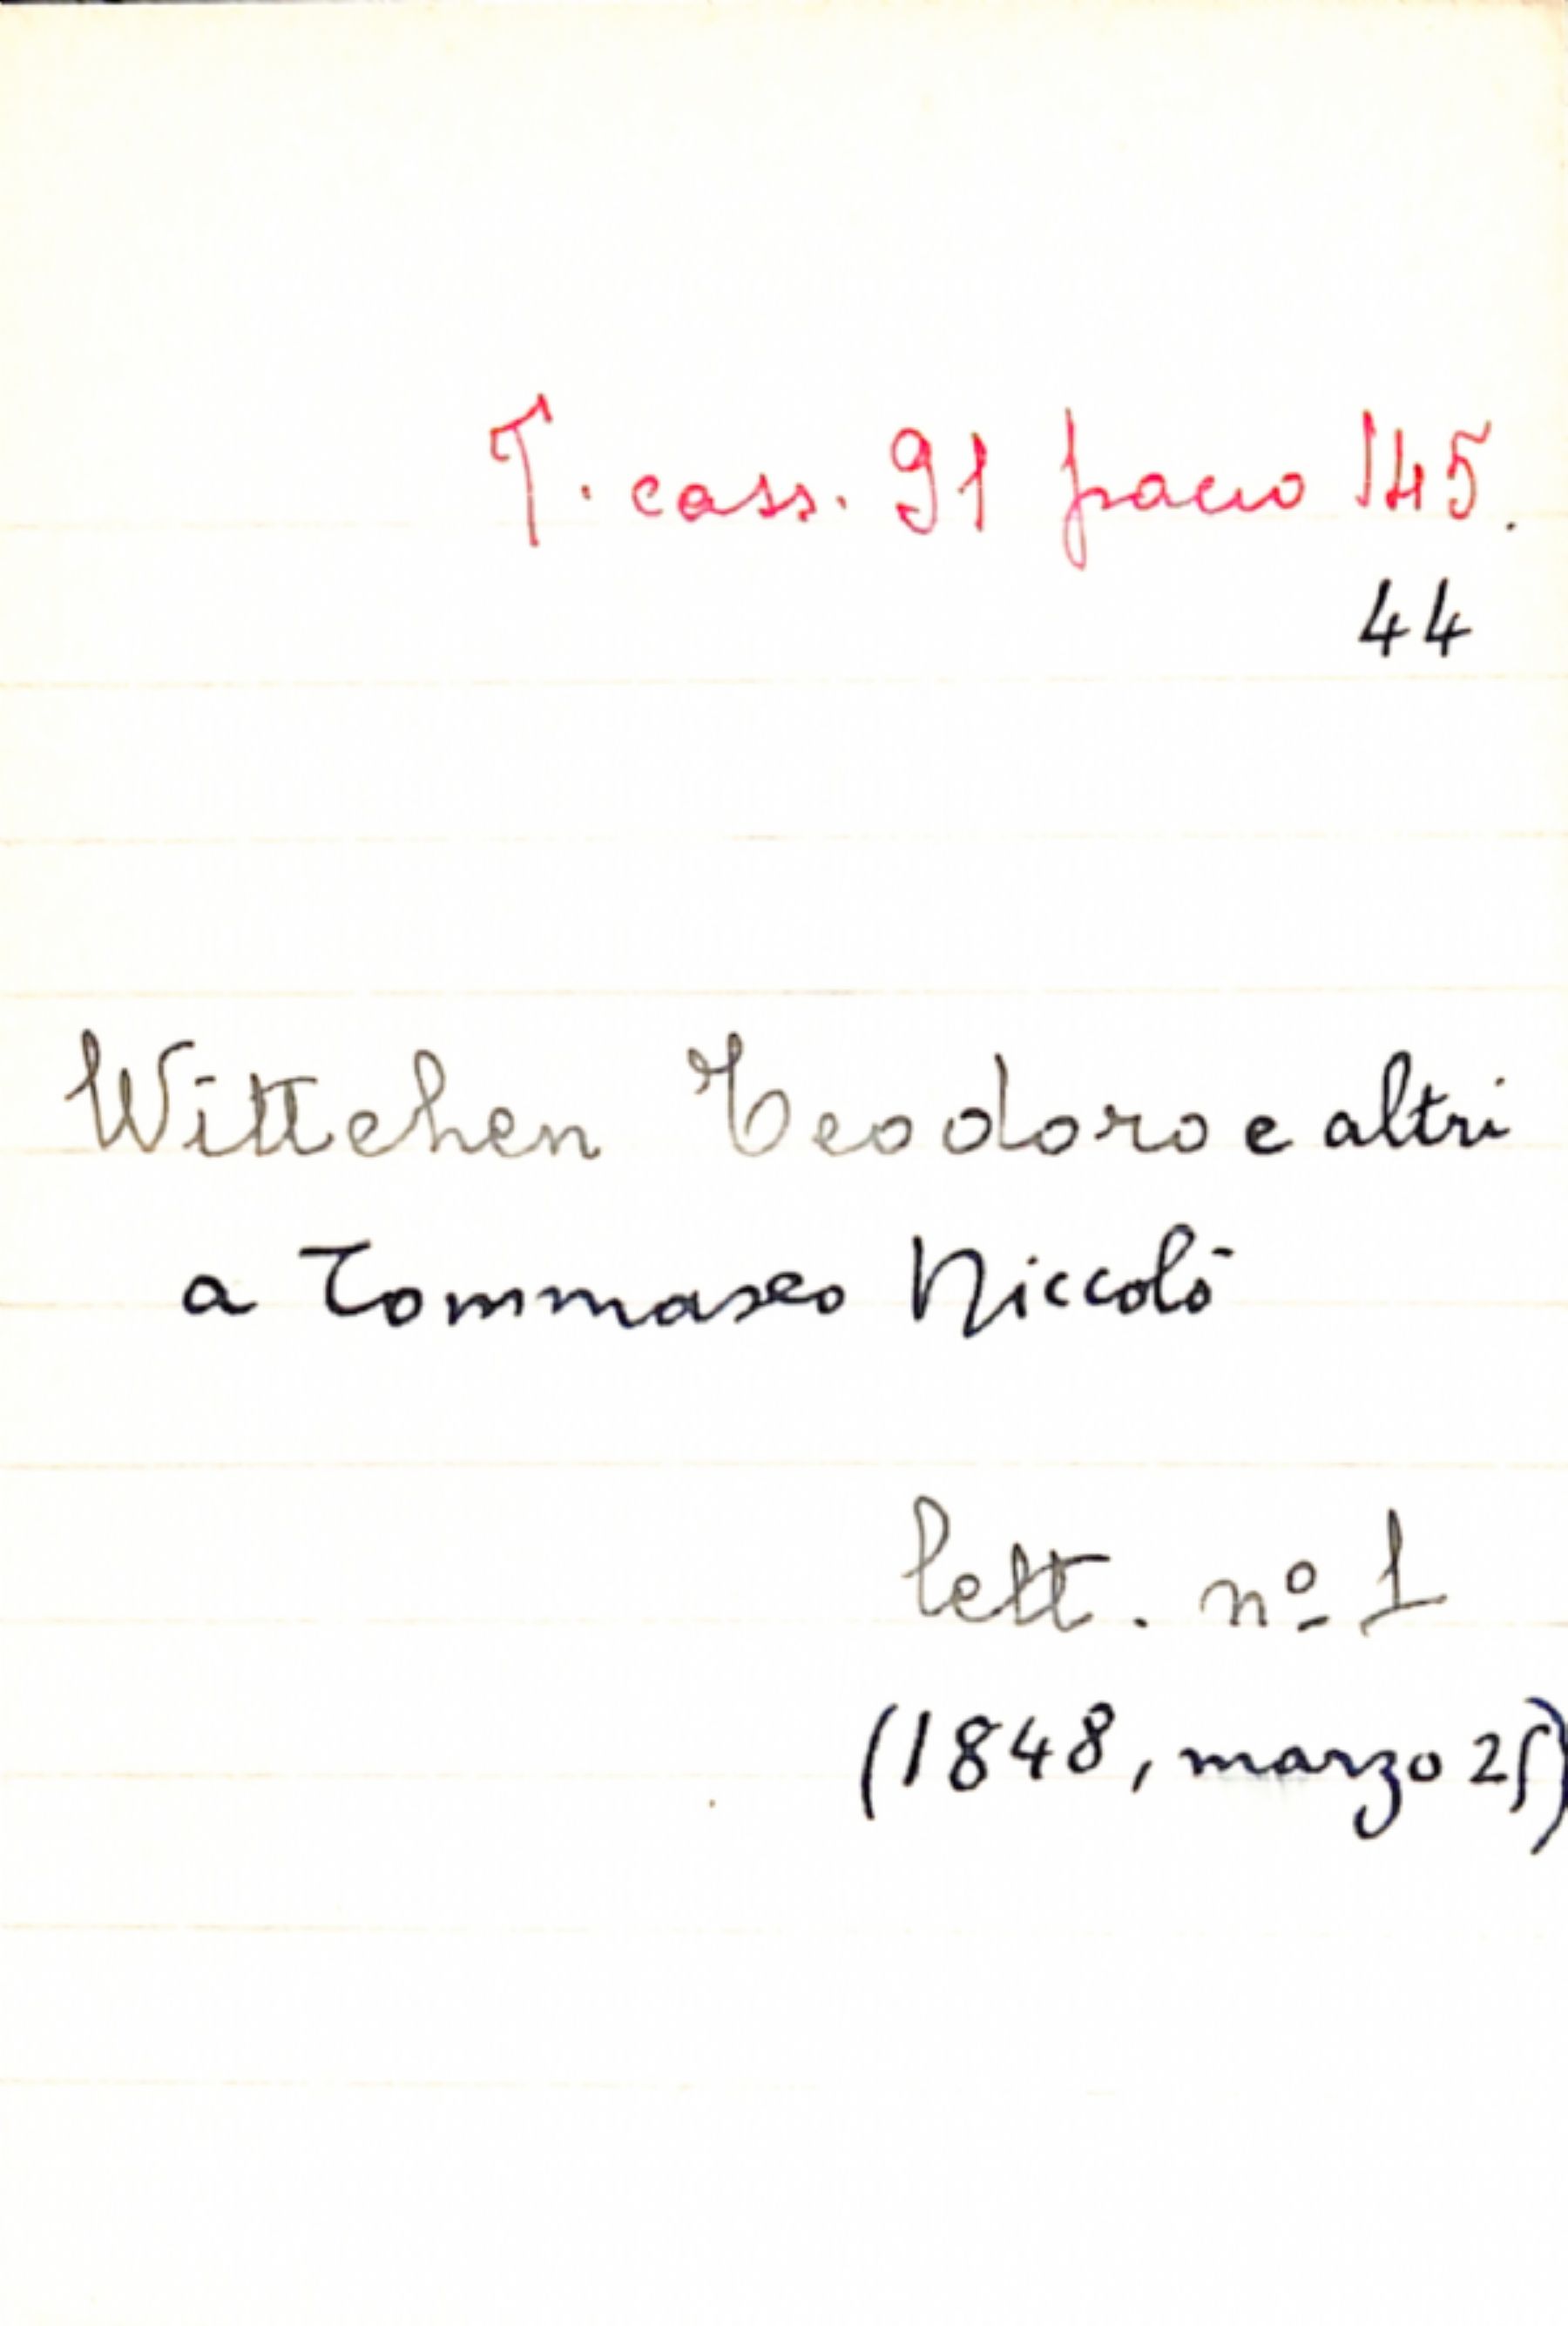 T. cass. 91 pacco 145.
44
Wittchen Teodoro e altri
a Tommaseo Niccolò
lett. nº 1
(1848, marzo 25)